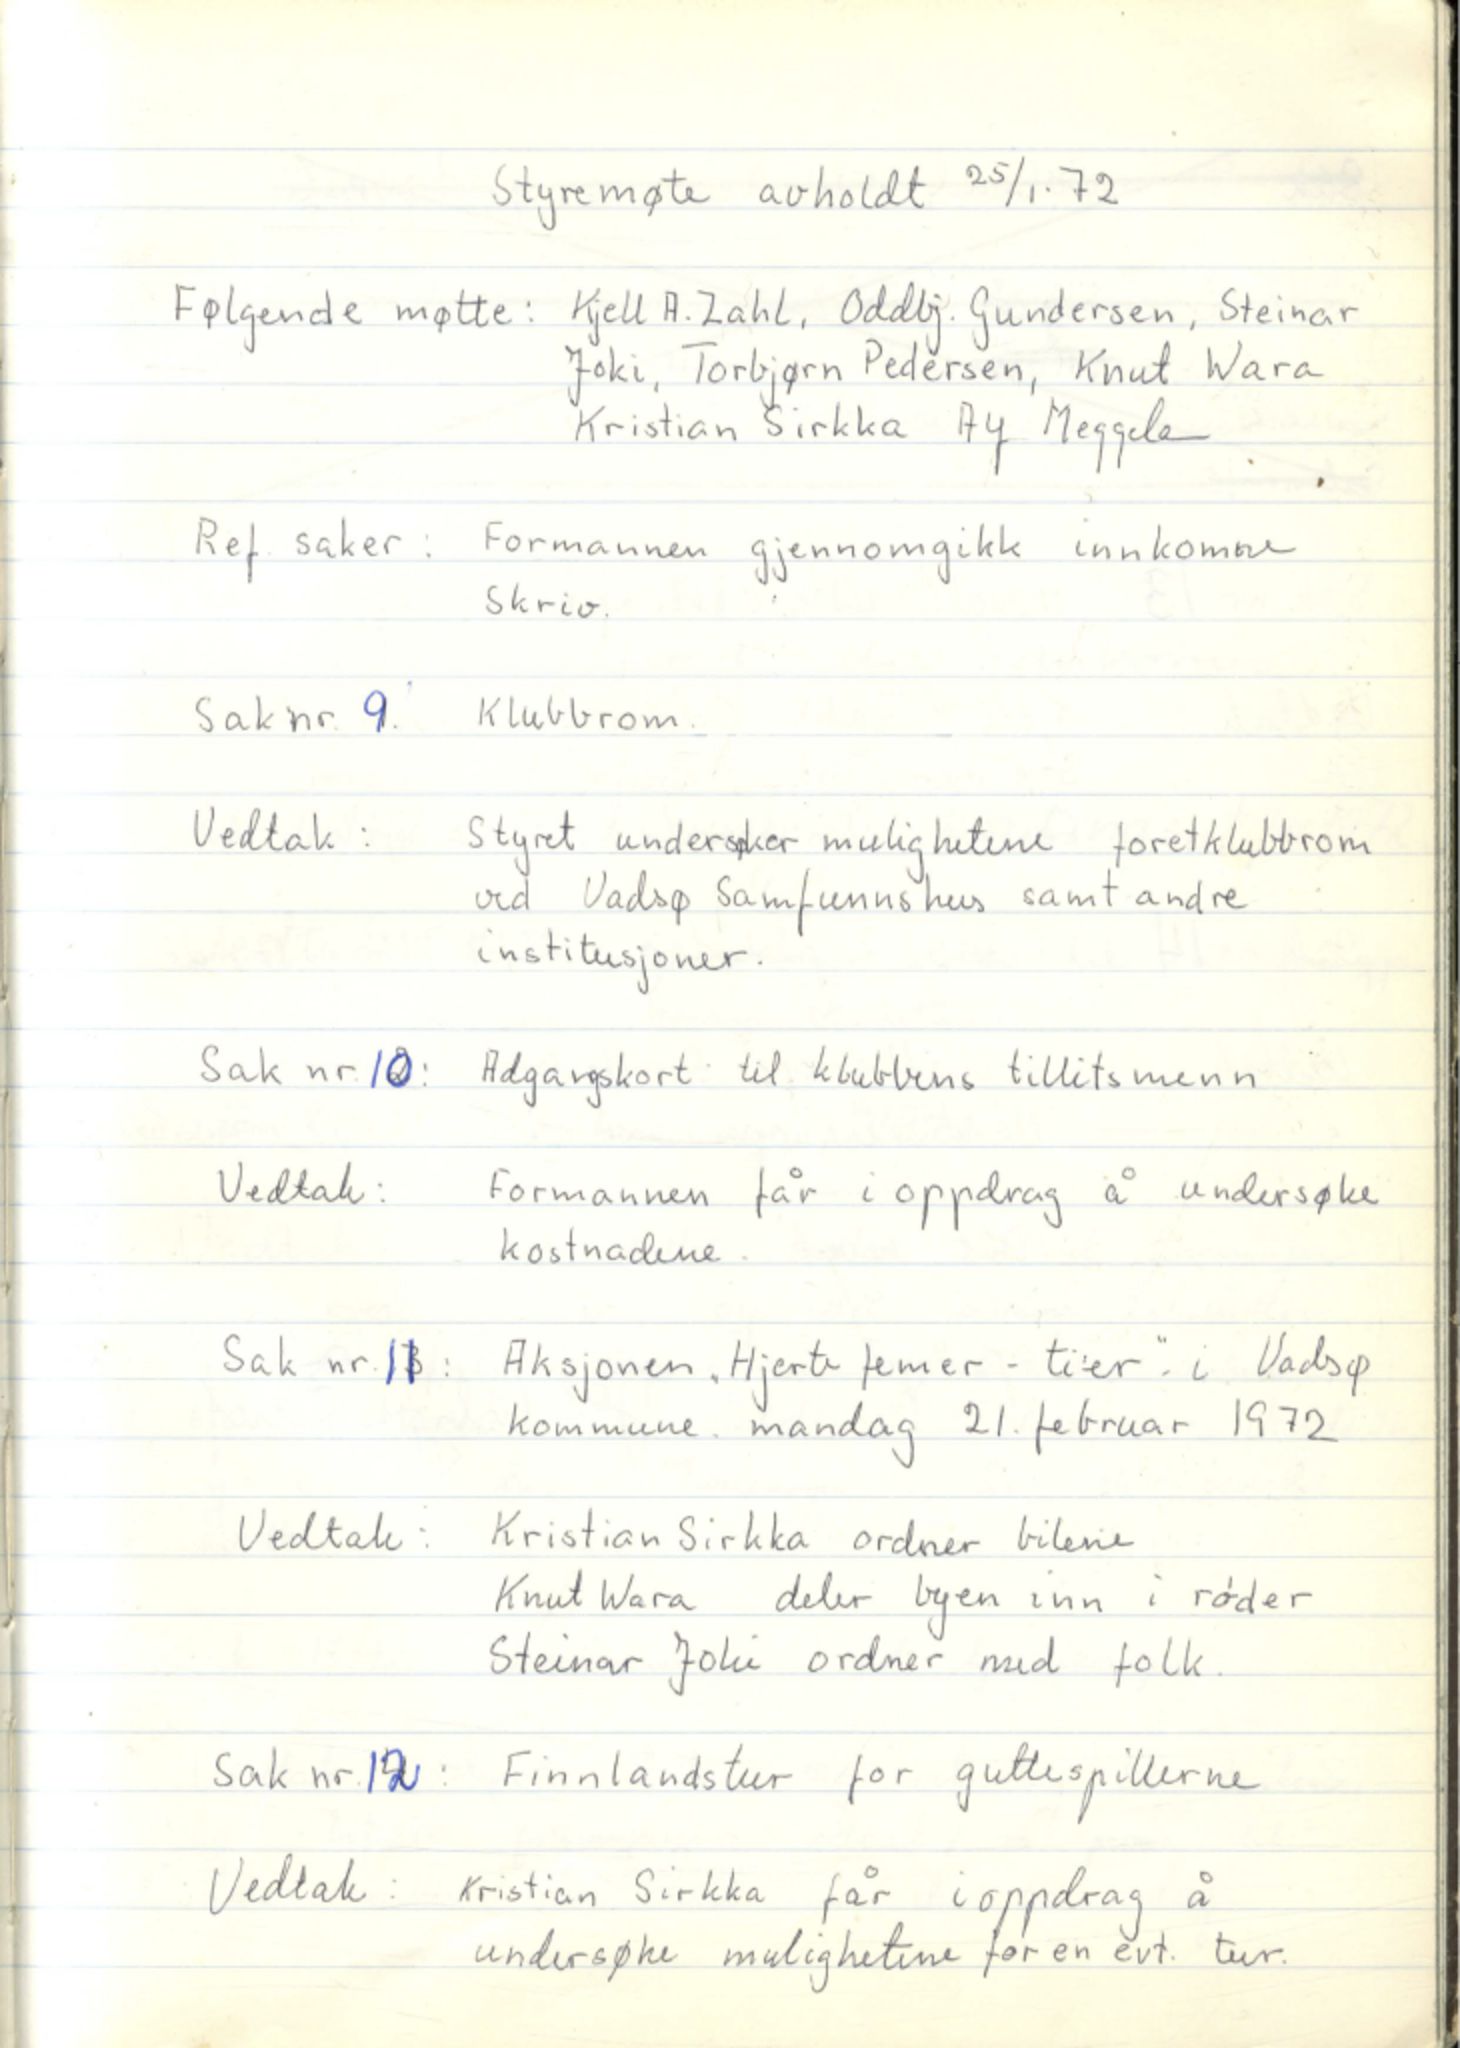 Styremøte avholdt 25/1.72
Følgende møtte: Kjell A. Zahl, Oddbj. Gundersen, Steinar
Joki, Torbjørn Pedersen, Knut Wara
Kristian Sirkka Meggela
Ref. saker: Formannen gjennomgikk innkomne
skriv.
Sak nr. 9. Klubbrom.
Vedtak: Styret undersøker mulighetene foretklubbrom
ved Vadsø Samfunnshus samt andre
institusjoner.
Sak nr. 10: Adgangskort til klubbens tillitsmenn
Vedtak: Formannen får i oppdrag å undersøke
kostnadene.
Sak nr. 11: Aksjonen „Hjerte femer - tier" i Vadsø
kommune. mandag 21. februar 1972
Vedtak: Kristian Sirkka ordner bilene
Knut Wara deler byen inn i róder
Steinar Joki ordner med folk.
Sak nr. 12: Finnlandstur for guttespillerne
Vedtak: Kristian Sirkka får i oppdrag å
undersøke mulighetene for en evt. tur.